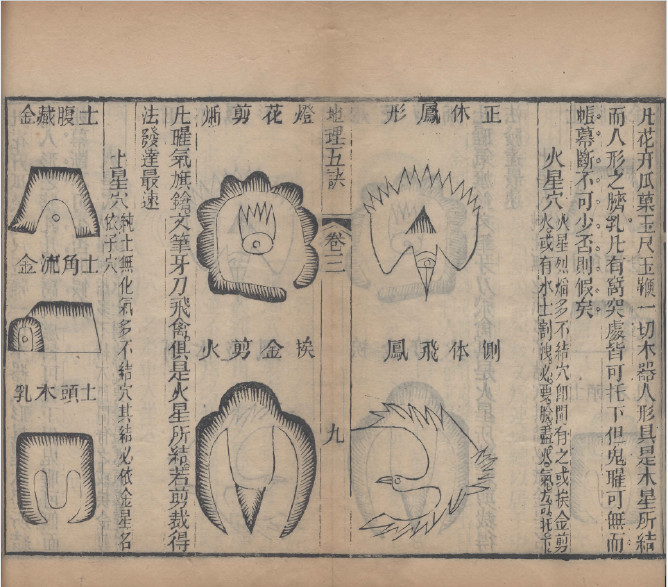 凡花卉瓜菓玉尺玉鞭一切木器人形具是木星所結
而人形之臍乳凡有窩突處皆可托下但鬼曜可無而
帳幕斷不可少否則假矣
火星穴
火星烈燄多不結穴即間有之或挨金剪
火或有水土割必要脫盡火氣方可托
正体鳳形
側体飛鳳
地理五訣
卷三
九
燈花剪焰
挨金剪火
凡曜氣旗鎗文筆牙刀飛禽俱是火星所結若剪裁得
法發達最速
土星穴
純土無化氣多不結穴其結必依金星名
依子穴
土腹藏金
土角流金
土頭木乳